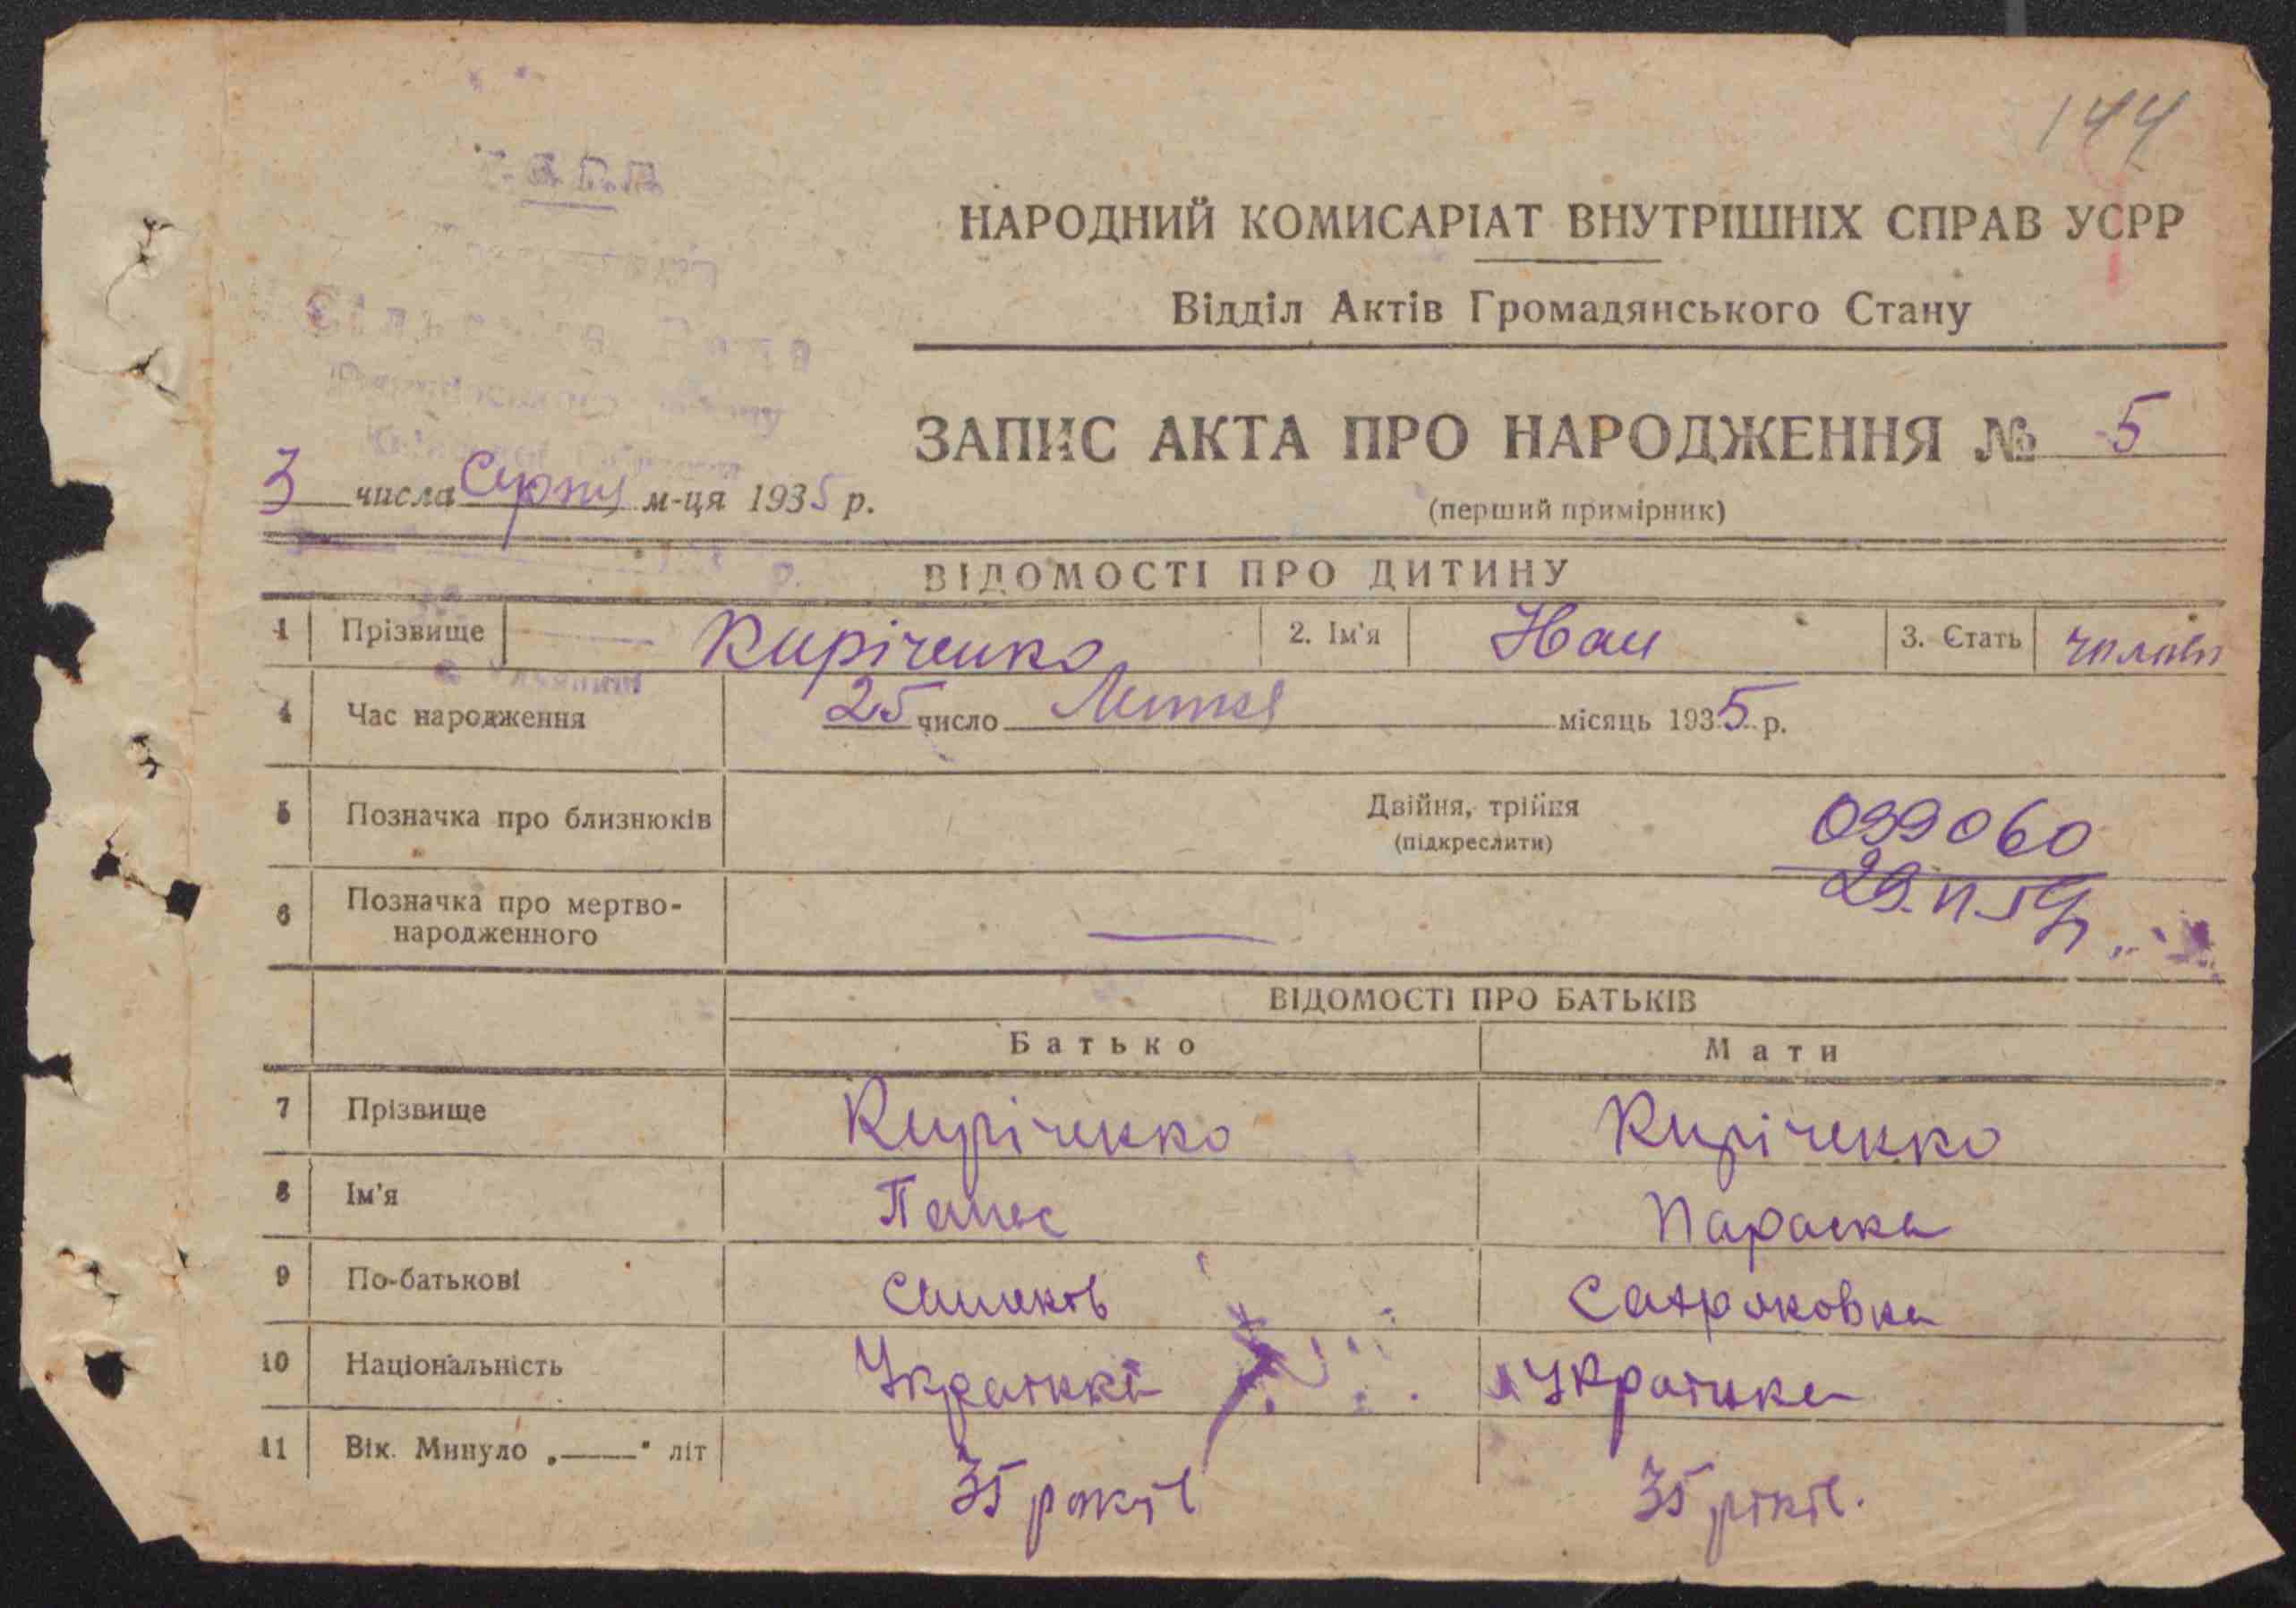 144
НАРОДНИЙ КОМИСАРІАТ ВНУТРІШНІХ СПРАВ УСРР
Відділ Актів Громадянського Стану
ЗАПИС АКТА ПРО НАРОДЖЕННЯ № 5
(перший примірник)
3 числа Серпня м-ця 1935 р.
ВІДОМОСТІ ПРО ДИТИНУ
1 Прізвище Кіріченко 2. Ім'я Іван 3. Стать
4 Час народження 25 число Липня місяць 1935 р.
5 Позначка про близнюків Двійня, трійня
(підкреслити)
099060
6 Позначка про мертво-
народженного
ВІДОМОСТІ ПРО БАТЬКІВ
Батько Мати
7 Прізвище Киріченко Киріченко
8 Ім'я Панас Параска
9 По-батькові
10 Національність
11 Вік. Минуло „——" літ 35 років 35 років.